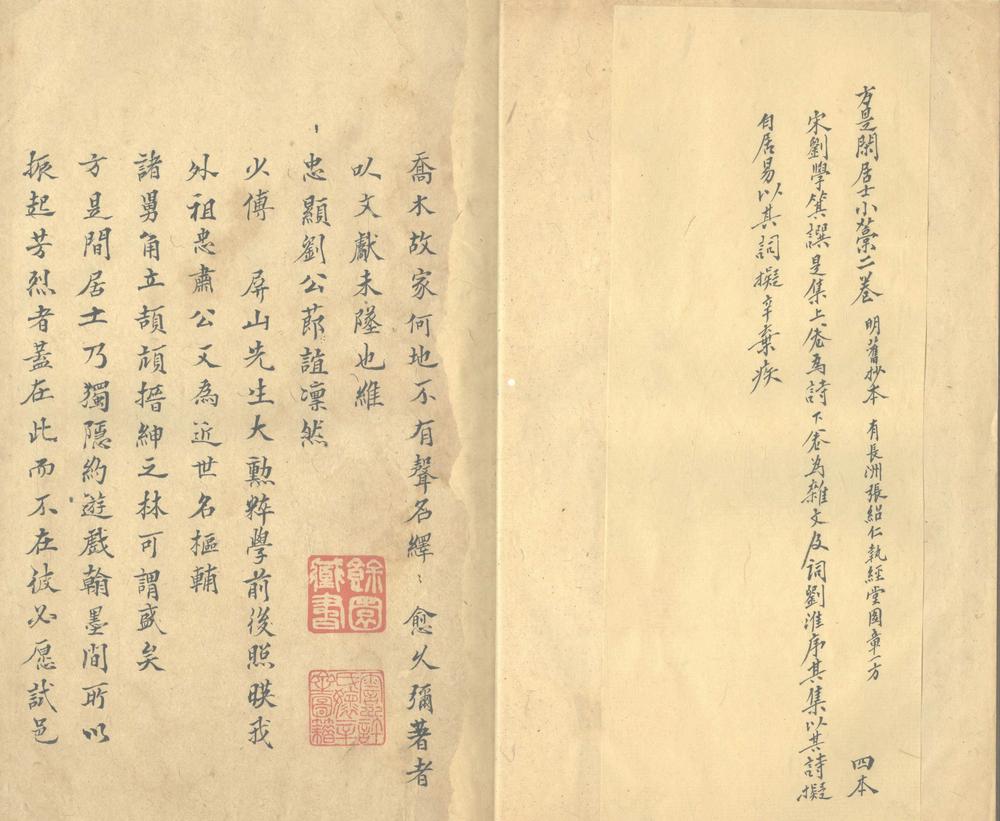 方是閑居士小藁二卷 明舊抄本 有長洲張紹仁執經堂圖章一方 四本
宋劉學箕譔是集上卷為詩下卷為雜文及詞劉淮序其集以其詩擬
白居易以其詞擬辛棄疾
喬木故家何地不有聲名繹〻愈久彌著者
以文獻未墜也維
忠顯劉公節誼凜然
少傅 屏山先生大勳粹學前後照暎我
外祖忠肅公又為近世名樞輔
諸舅角立頡頏搢紳之林可謂盛矣
方是間居士乃獨隱約遊戲翰墨間所以
振起芳烈者蓋在此而不在彼必愿試邑
餘園藏書